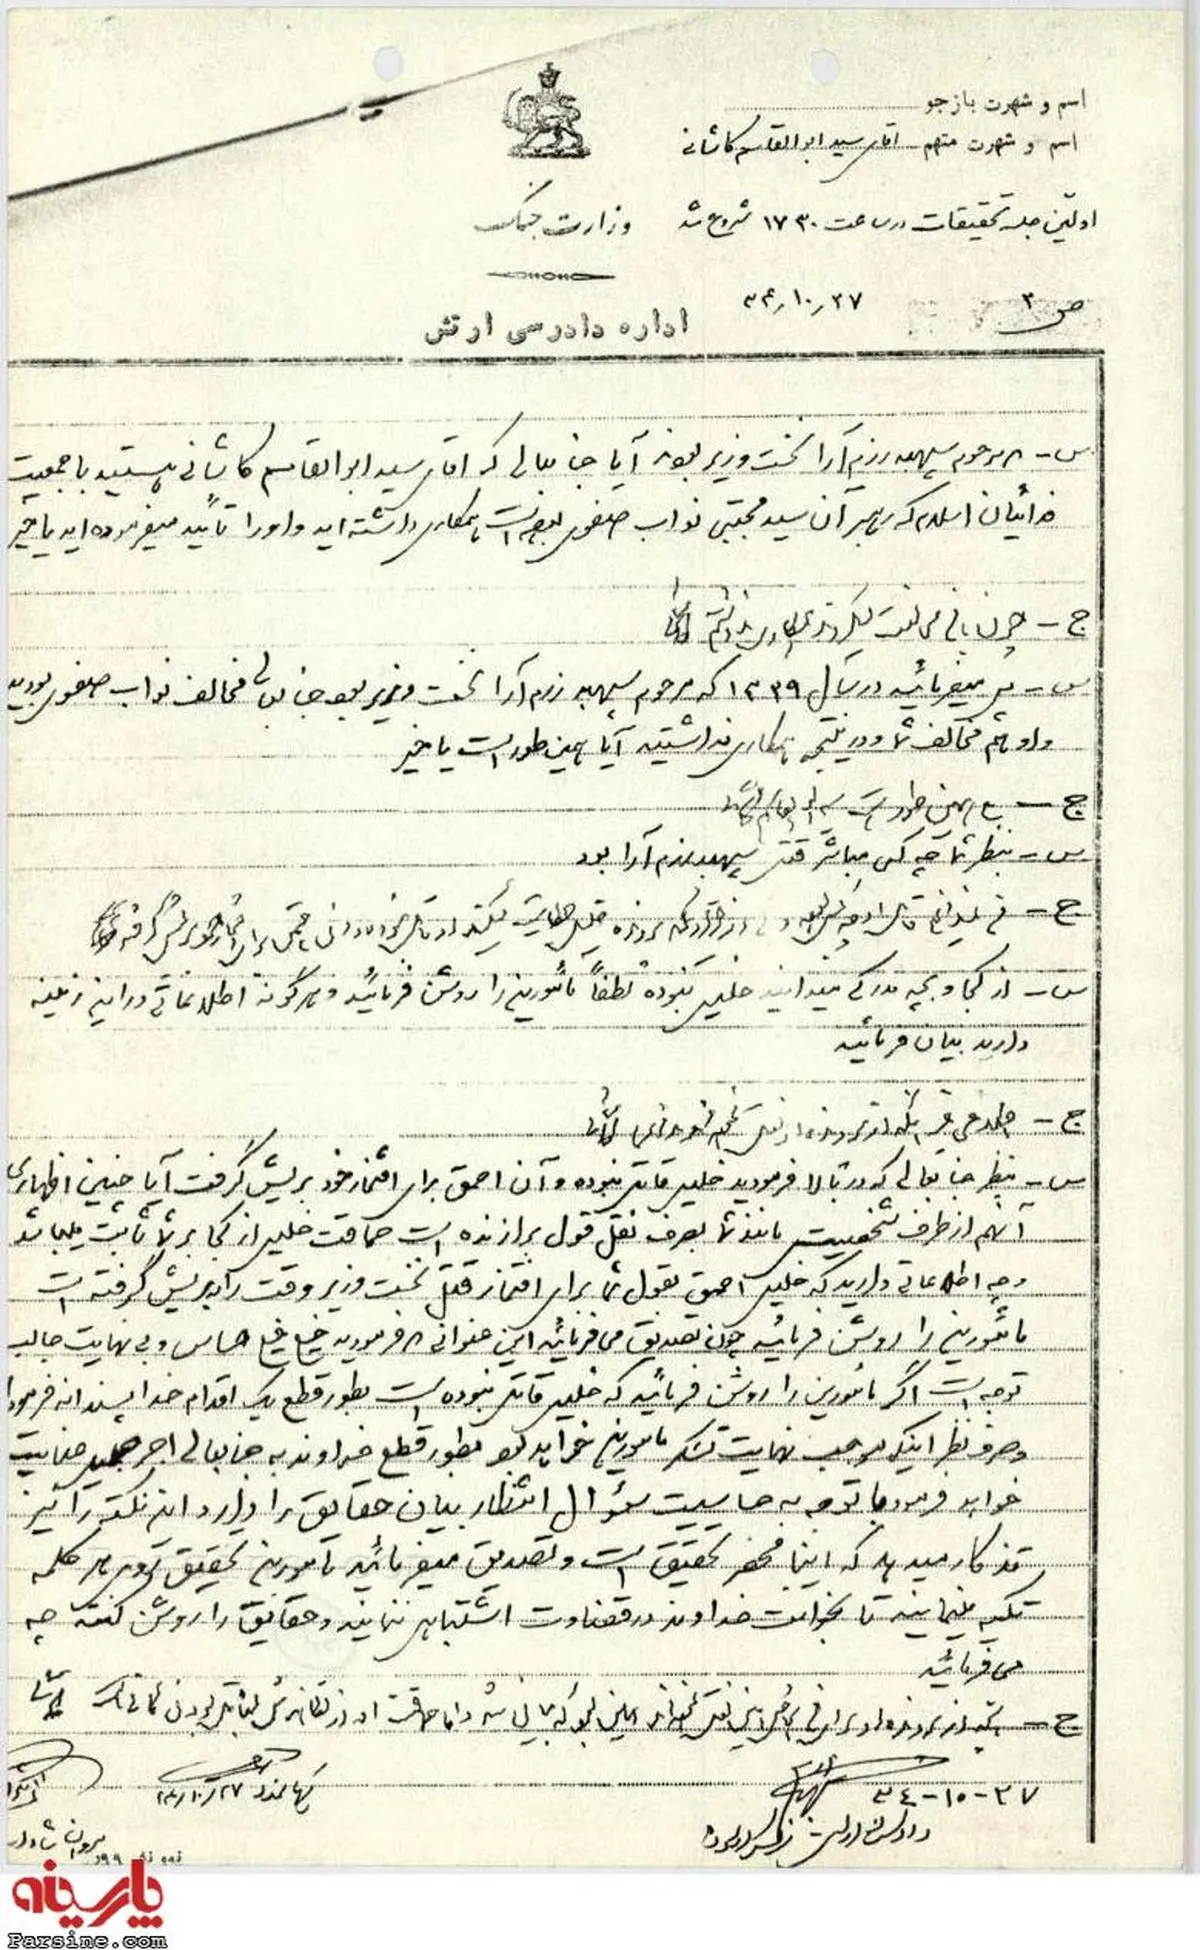 اسم و شهرت بازجو
اسم و شهرت متهم - آقای سید ابوالقاسم کاشانی
اولین جلسه تحقیقات در ساعت ۱۷۳۰ شروع شد
وزارت جنگ
ص ۳
۳۴/۱۰/۲۷
اداره دادرسی ارتش
س - مرحوم سپهبد رزم آرا نخست وزیر بودند آیا جنابعالی که آقای سید ابوالقاسم کاشانی هستید با جمعیت
فدائیان اسلام که رهبر آن سید مجتبی نواب صفوی بوده است همکاری داشته اید و او را تأیید میفرموده اید یا خیر
ج - چون با من مخالفت میکردند همکاری نداشتم
س - پس میفرمائید در سال ۱۳۲۹ که مرحوم سپهبد رزم آرا نخست وزیر بود جنابعالی مخالف نواب صفوی بودید
و او هم مخالف شما و در نتیجه همکاری نداشتید آیا همین طور است یا خیر
ج - بله همین طور است
س - بنظر شما چه کسی مباشر قتل سپهبد رزم آرا بود
ج - من نمیدانم قاتل او چه کسی بود ولی از قراریکه پرونده خلیل حکایت میکند او قاتل نبوده ولی احمق برای افتخار خود بریش گرفته
س - از کجا و بچه مدرکی میدانید خلیل نبوده لطفاً مأمورین را روشن فرمائید و هرگونه اطلاعاتی در این زمینه
دارید بیان فرمائید
ج - اطلاعی غیر اینکه از پرونده او نقل
س - بنظر جنابعالی که در بالا فرمودید خلیل قاتل نبوده و آن احمق برای افتخار خود بریش گرفت آیا چنین اظهاری
آنهم از طرف شخصیتی مانند شما بصرف نقل قول برازنده است حماقت خلیل از کجا بر شما ثابت میباشد
و چه اطلاعاتی دارید که خلیل احمق بقول شما برای افتخار قتل نخست وزیر وقت را بریش گرفته است
مأمورین را روشن فرمائید چون تصدیق می فرمائید این عنوانی که فرمودید خیلی خیلی حساس و بی نهایت جالب
توجه است اگر مأمورین را روشن فرمائید که خلیل قاتل نبوده است بطور قطع یک اقدام خدا پسندانه فرموده
و صرف نظر اینکه موجب نهایت تشکر مأمورین خواهد بود بطور قطع خداوند به جنابعالی اجر جمیل عنایت
خواهد فرمود با توجه به حساسیت سؤال انتظار بیان حقایق را دارد این نکته را نیز
تذکار میدهد که اینجا محضر تحقیق است و تصدیق میفرمائید مأمورین تحقیق روی هر کلمه
تکیه مینمایند تا بخواست خداوند در قضاوت اشتباهی ننمایند و حقایق را روشن کنند چه
می فرمائید
۳۴-۱۰-۲۷
۳۴/۱۰/۲۷
پارسینه
Parsine.com